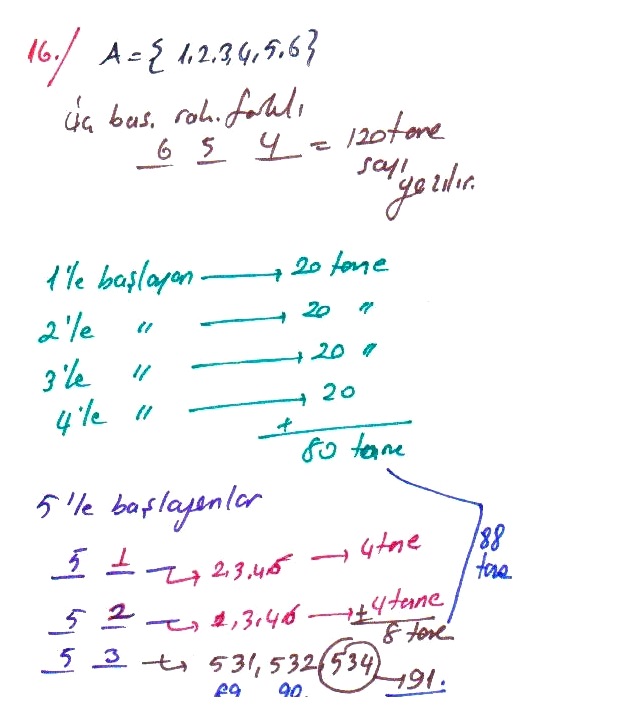 16./ A={1,2,3,4,5,6}
Üç bas. rak. farklı
6 5 4 = 120 tane
sayı
yazılır.
1'le başlayan → 20 tane
2'le " → 20 "
3'le " → 20 "
4'le " → 20
+
80 tane
5'le başlayanlar
5 1 → 2,3,4,6 → 4 tane
5 2 → 1,3,4,6 → + 4 tane
8 tane
88
tane
5 3 → 531, 532, 534 → 91.
89 90.